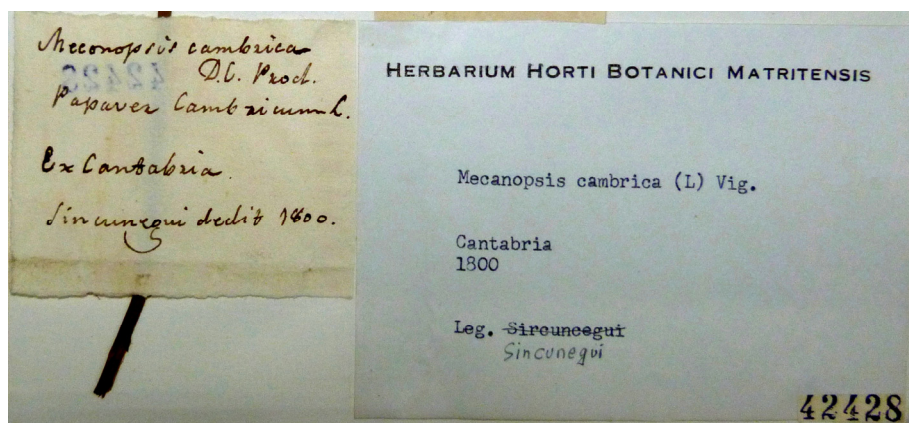 Meconopsis cambrica
D.C. Prod.
Papaver Cambricum L.
Ex Cantabria.
Sincunegui dedit 1800.
42428
HERBARIUM HORTI BOTANICI MATRITENSIS
Mecanopsis cambrica (L) Vig.
Cantabria
1800
Leg. Sircuncegui
Sincunegui
42428